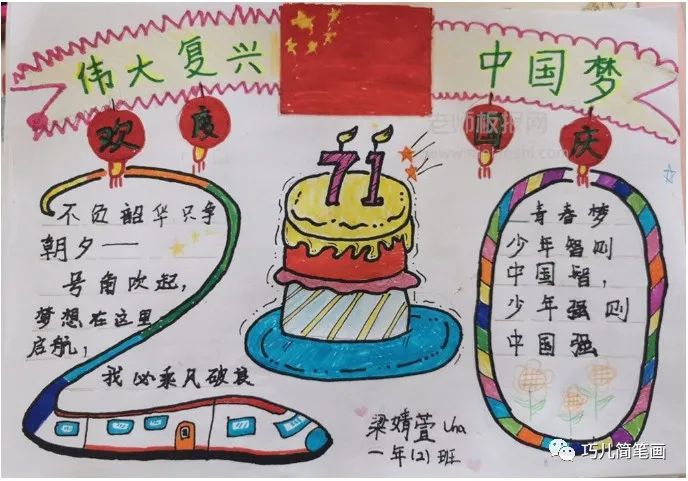 伟大复兴 中国梦
欢度国庆
71
不负韶华只争
朝夕——
号角吹起，
梦想在这里
启航，
我必乘风破浪
青春梦
少年智则
中国智，
少年强则
中国强
梁婧萱 Una
一年(2)班
老师板报网
巧儿简笔画